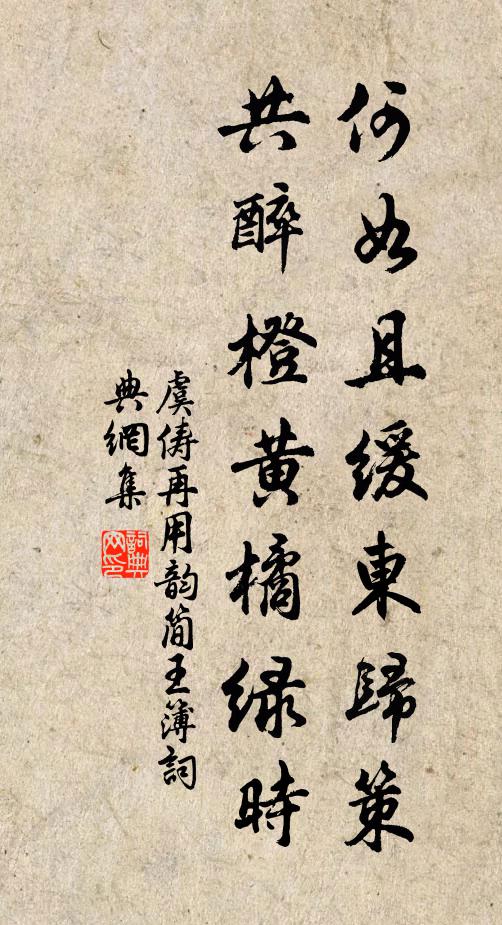 何如且緩東歸策
共醉橙黄橘緑時
虞儔再用韵簡王簿詞
典網集
詞典
网印